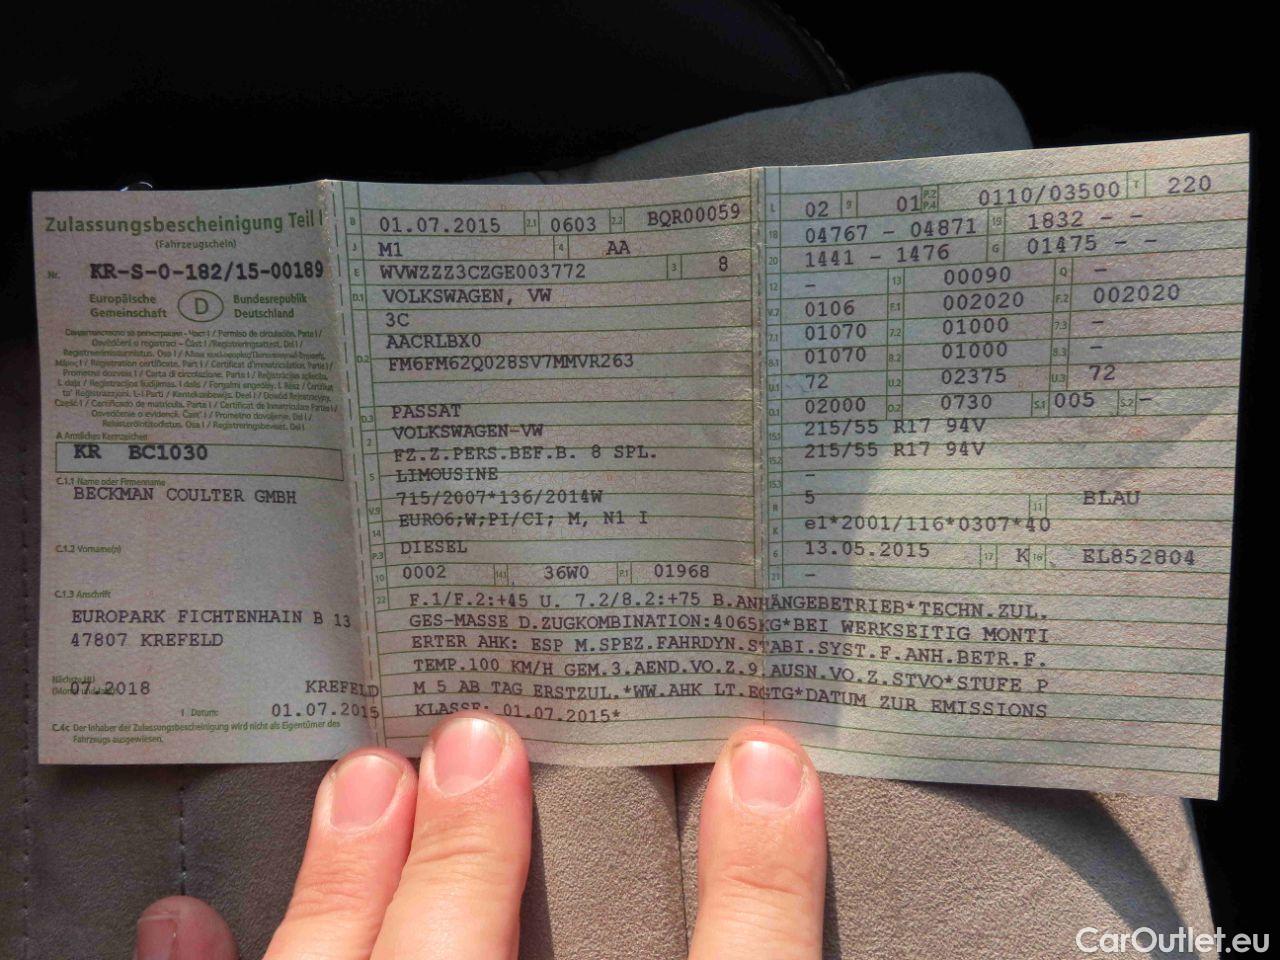 Zulassungsbescheinigung Teil I
(Fahrzeugschein)
Nr. KR-S-0-182/15-00189
Europäische Gemeinschaft D Bundesrepublik Deutschland
A Amtliches Kennzeichen
KR BC1030
C.1.1 Name oder Firmenname
BECKMAN COULTER GMBH
C.1.2 Vorname(n)
C.1.3 Anschrift
EUROPARK FICHTENHAIN B 13
47807 KREFELD
07.2018 KREFELD
I Datum: 01.07.2015
C.4c Der Inhaber der Zulassungsbescheinigung wird nicht als Eigentümer des
Fahrzeugs ausgewiesen.
B 01.07.2015 2.1 0603 2.2 BQR00059
J M1 4 AA
E WVWZZZ3CZGE003772 3 8
D.1 VOLKSWAGEN, VW
3C
AACRLBX0
D.2 FM6FM62Q028SV7MMVR263
D.3 PASSAT
2 VOLKSWAGEN-VW
FZ.Z.PERS.BEF.B. 8 SPL.
5 LIMOUSINE
715/2007*136/2014W
V.9 EURO6;W;PI/CI; M, N1 I
14
P.3 DIESEL
10 0002 14.1 36W0 P.1 01968
L 02 9 01 P.2 P.4 0110/03500 T 220
18 04767 - 04871 19 1832 - -
20 1441 - 1476 G 01475 - -
12 - 13 00090 Q -
V.7 0106 F.1 002020 F.2 002020
7.1 01070 7.2 01000 7.3 -
8.1 01070 8.2 01000 8.3 -
U.1 72 U.2 02375 U.3 72
O.1 02000 O.2 0730 S.1 005 S.2 -
15.1 215/55 R17 94V
15.2 215/55 R17 94V
15.3 -
R 5 11 BLAU
K e1*2001/116*0307*40
6 13.05.2015 17 K 16 EL852804
21 -
22 F.1/F.2:+45 U. 7.2/8.2:+75 B.ANHÄNGEBETRIEB*TECHN.ZUL.
GES-MASSE D.ZUGKOMBINATION:4065KG*BEI WERKSEITIG MONTI
ERTER AHK: ESP M.SPEZ.FAHRDYN.STABI.SYST.F.ANH.BETR.F.
TEMP.100 KM/H GEM.3.AEND.VO.Z.9 AUSN.VO.Z.STVO*STUFE P
M 5 AB TAG ERSTZUL.*WW.AHK LT.EGTG*DATUM ZUR EMISSIONS
KLASSE: 01.07.2015*
CarOutlet.eu